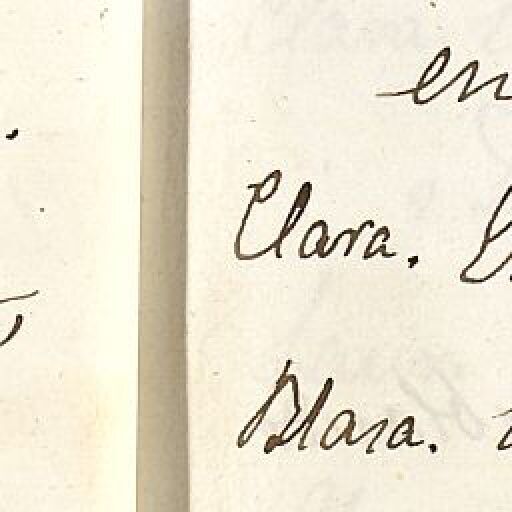 en
Clara.
Blasa.